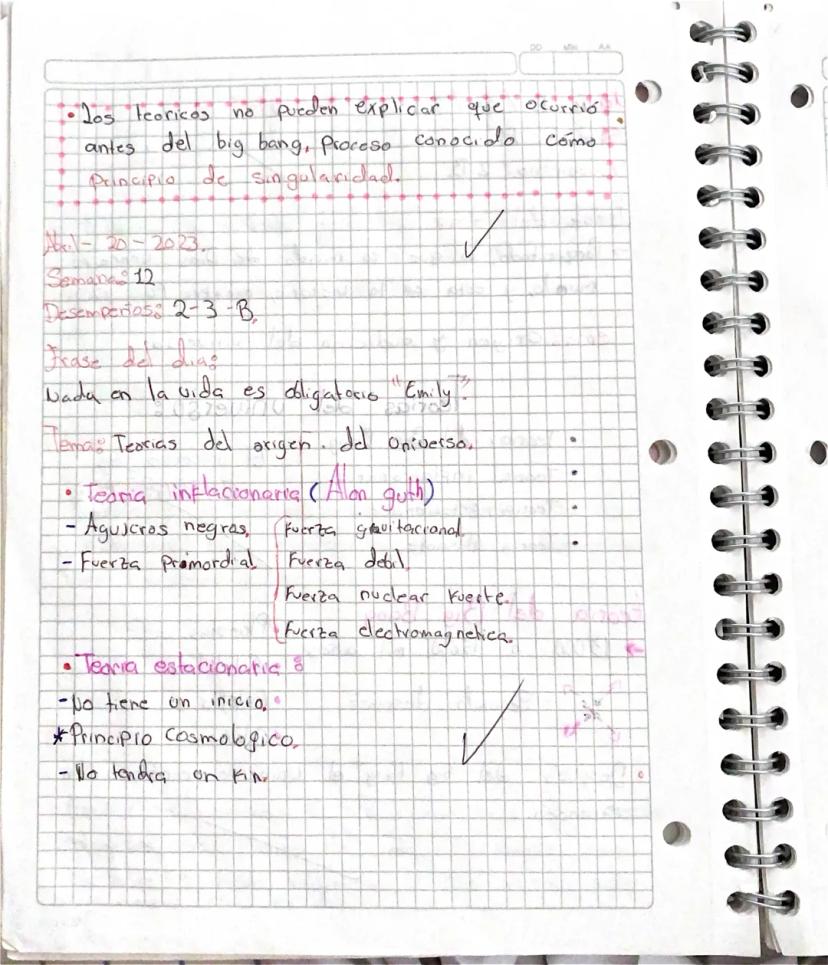 DD MM AA
• Los teoricos no pueden explicar que ocurrió
antes del big bang, proceso conocido cómo
Principio de singularidad.
Abril - 20 - 2023.
Semana: 12
Desempeños: 2-3-B.
Frase del dia:
Nada en la vida es obligatorio "Emily".
Tema: Teorias del origen del universo.
• Teoria inflacionaria (Alan guth)
- Agujeros negros. Fuerza gravitacional
- Fuerza Primordial Fuerza debil.
Fuerza nuclear Fuerte.
Fuerza electromagnetica.
• Teoria estacionaria:
- No tiene un inicio.
* Principio Cosmologico.
- No tendra un Fin.